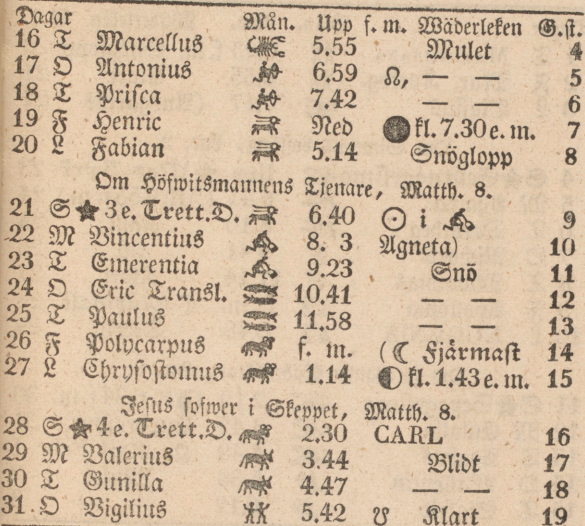 Dagar Mån. Upp f. m. Wäderleken G.st.
16 T Marcellus 5.55 Mulet 4
17 O Antonius 6.59 ☊, — — 5
18 T Prisca 7.42 — — 6
19 F Henric Ned ● kl. 7.30 e. m. 7
20 L Fabian 5.14 Snöglopp 8
Om Höfwitsmannens Tjenare, Matth. 8.
21 S ★ 3 e. Trett. D. 6.40 ☉ i ♒ 9
22 M Vincentius 8. 3 Agneta) 10
23 T Emerentia 9.23 Snö 11
24 O Eric Transl. 10.41 — — 12
25 T Paulus 11.58 — — 13
26 F Polycarpus f. m. (☾ Fjärmast 14
27 L Chrysostomus 1.14 ◐ kl. 1.43 e. m. 15
Jesus sofwer i Skeppet, Matth. 8.
28 S ★ 4 e. Trett. D. 2.30 CARL 16
29 M Valerius 3.44 Blidt 17
30 T Gunilla 4.47 — — 18
31 O Vigilius 5.42 ☋ Klart 19